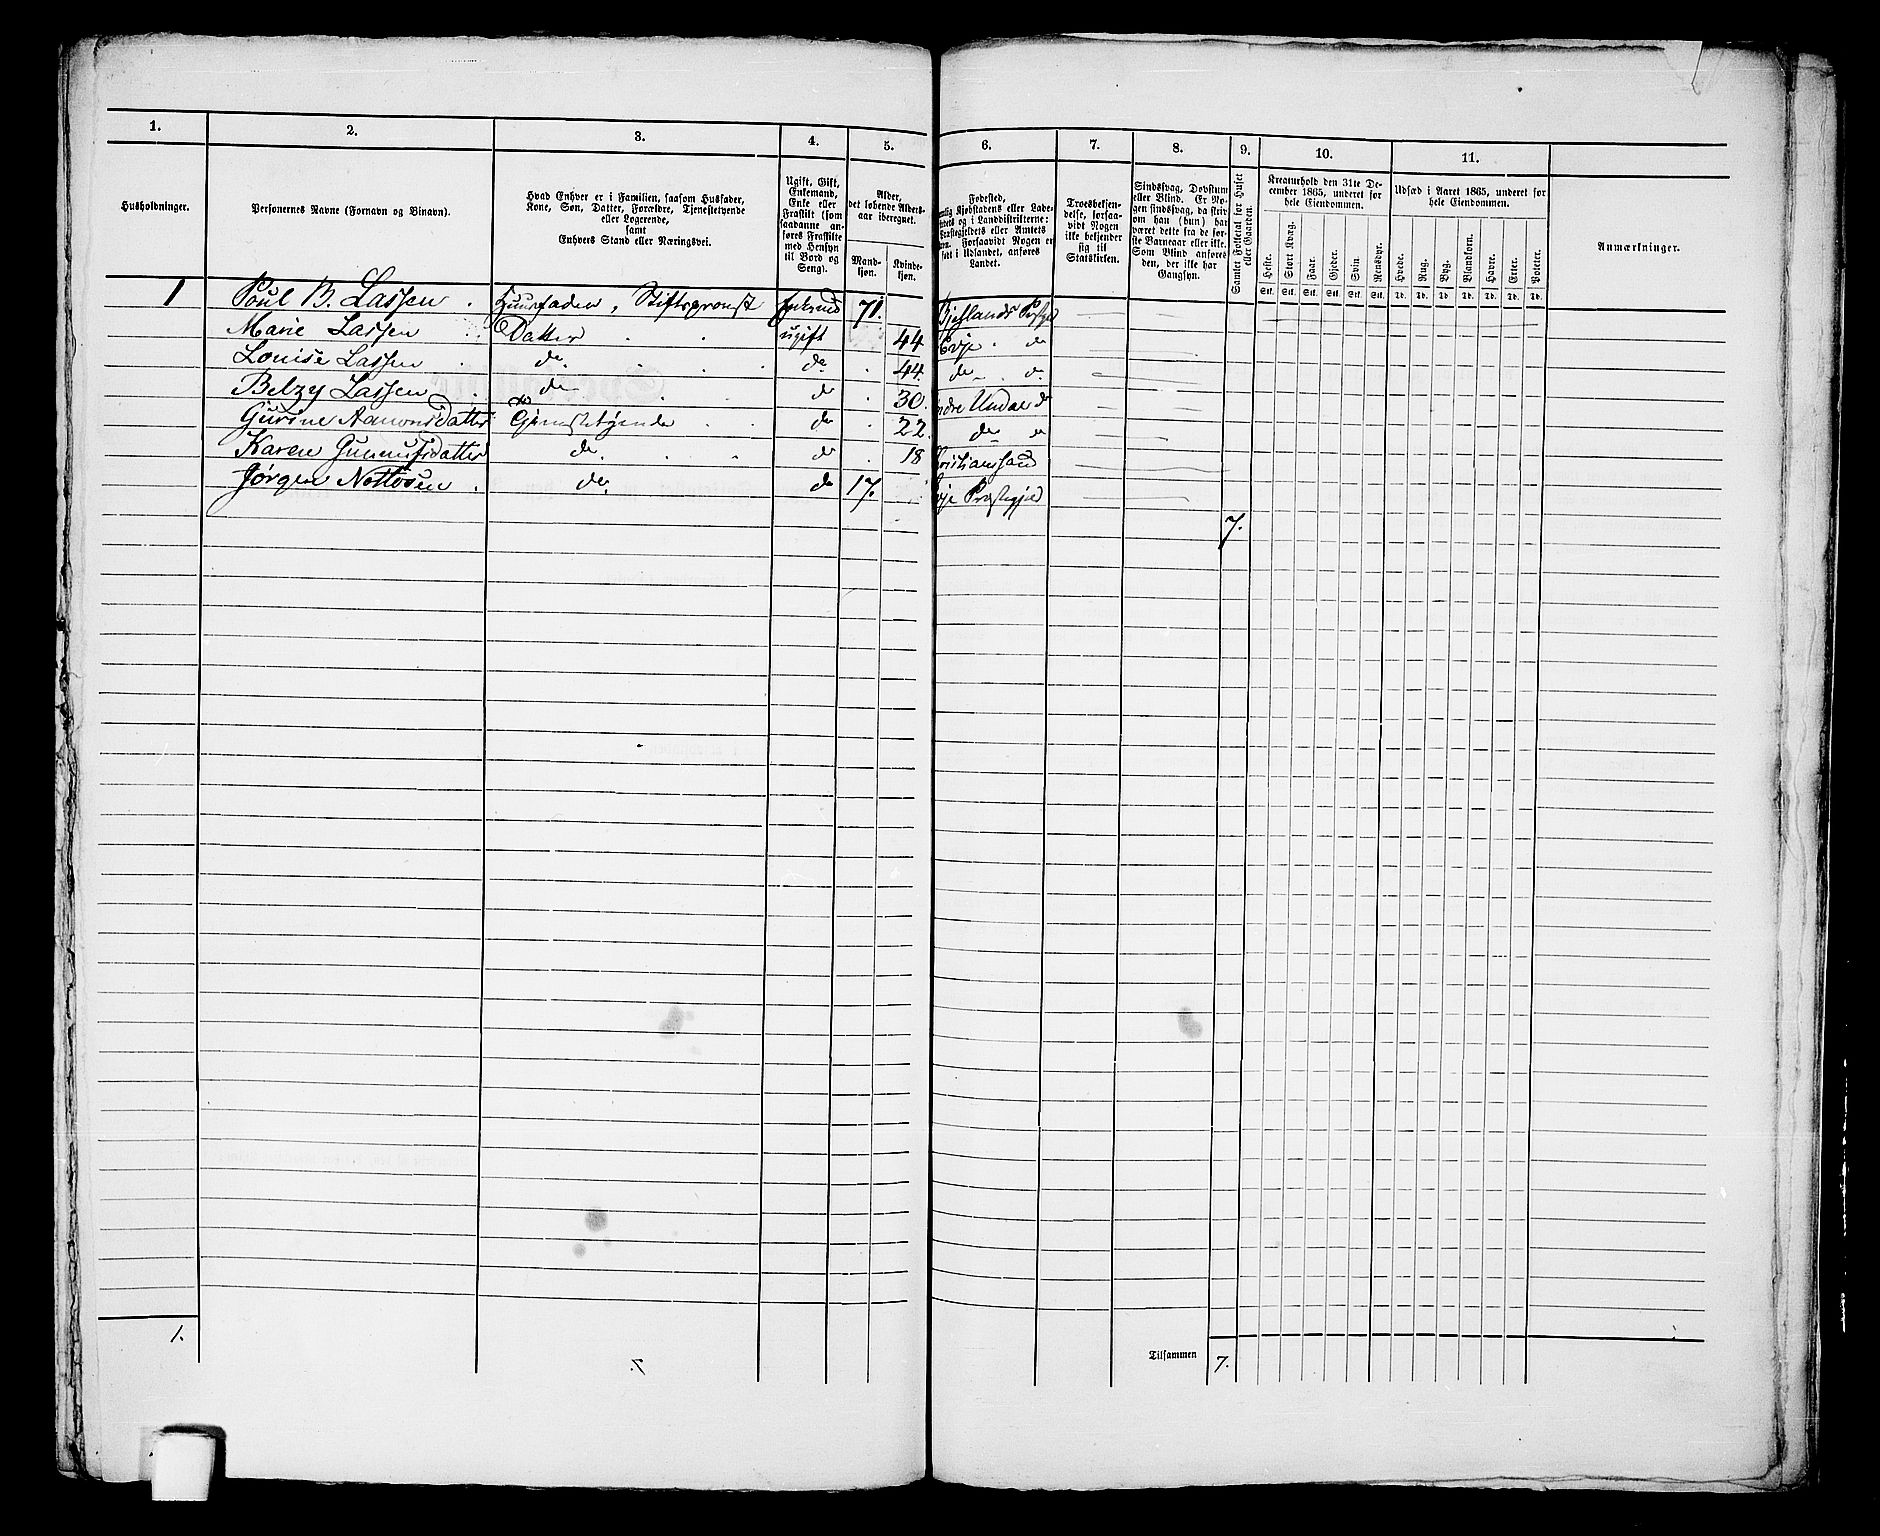 1. 2. 3. 4. 5. 6. 7. 8. 9. 10. 11.
Husholdninger.
Personernes Navne (Fornavn og Binavn).
Hvad Enhver er i Familien, saasom Husfader,
Kone, Søn, Datter, Forældre, Tjenestetyende
eller Logerende,
samt
Enhvers Stand eller Næringsvei.
Ugift, Gift,
Enkemand,
Enke eller
Fraskilt (som
saadanne an-
føres Fraskilte
med Hensyn
til Bord og
Seng).
Alder,
det løbende Alders-
aar iberegnet.
Mand-
kjøn.
Kvinde-
kjøn.
Fødested,
Kjøbstadens eller Lade-
og i Landdistrikterne:
Præstegjeldets eller Amtets
Forsaavidt Nogen er
født i Udlandet, anføres
Landet.
Troesbekjen-
delse, forsaa-
vidt Nogen
ikke bekjender
sig til
Statskirken.
Sindssvag, Døvstum
eller Blind. Er No-
gen sindssvag, da skriv
om han (hun) har
været dette fra de før-
ste Barneaar eller ikke.
Som Blind anføres
den, der ikke har
Gangsyn.
Samlet Folketal for Huset
eller Gaarden.
Kreaturhold den 31te De-
cember 1865, underet for
hele Eiendommen.
Heste. Stort Kvæg. Faar. Gjeder. Svin. Rensdyr.
Stk. Stk. Stk. Stk. Stk. Stk.
Udsæd i Aaret 1865, underet for
hele Eiendommen.
Hvede. Rug. Byg. Blandkorn. Havre. Erter. Poteter.
Td. Td. Td. Td. Td. Td. Td.
Anmærkninger.
1 Poul B. Lassen Huusfader, Stiftsprovst Enkemd 71. Bjellands
Marie Lassen Datter ugift 44 Evje do
Louise Lassen do do 44. do do
Betzy Lassen do do 30. Undal do
Gurine Aamonsdatter Tjenestetyende do 22. do
Karen Gunnufsdatter do do 18
Jørgen do do 17. Præstegjeld
7.
1. 7
Tilsammen 7.